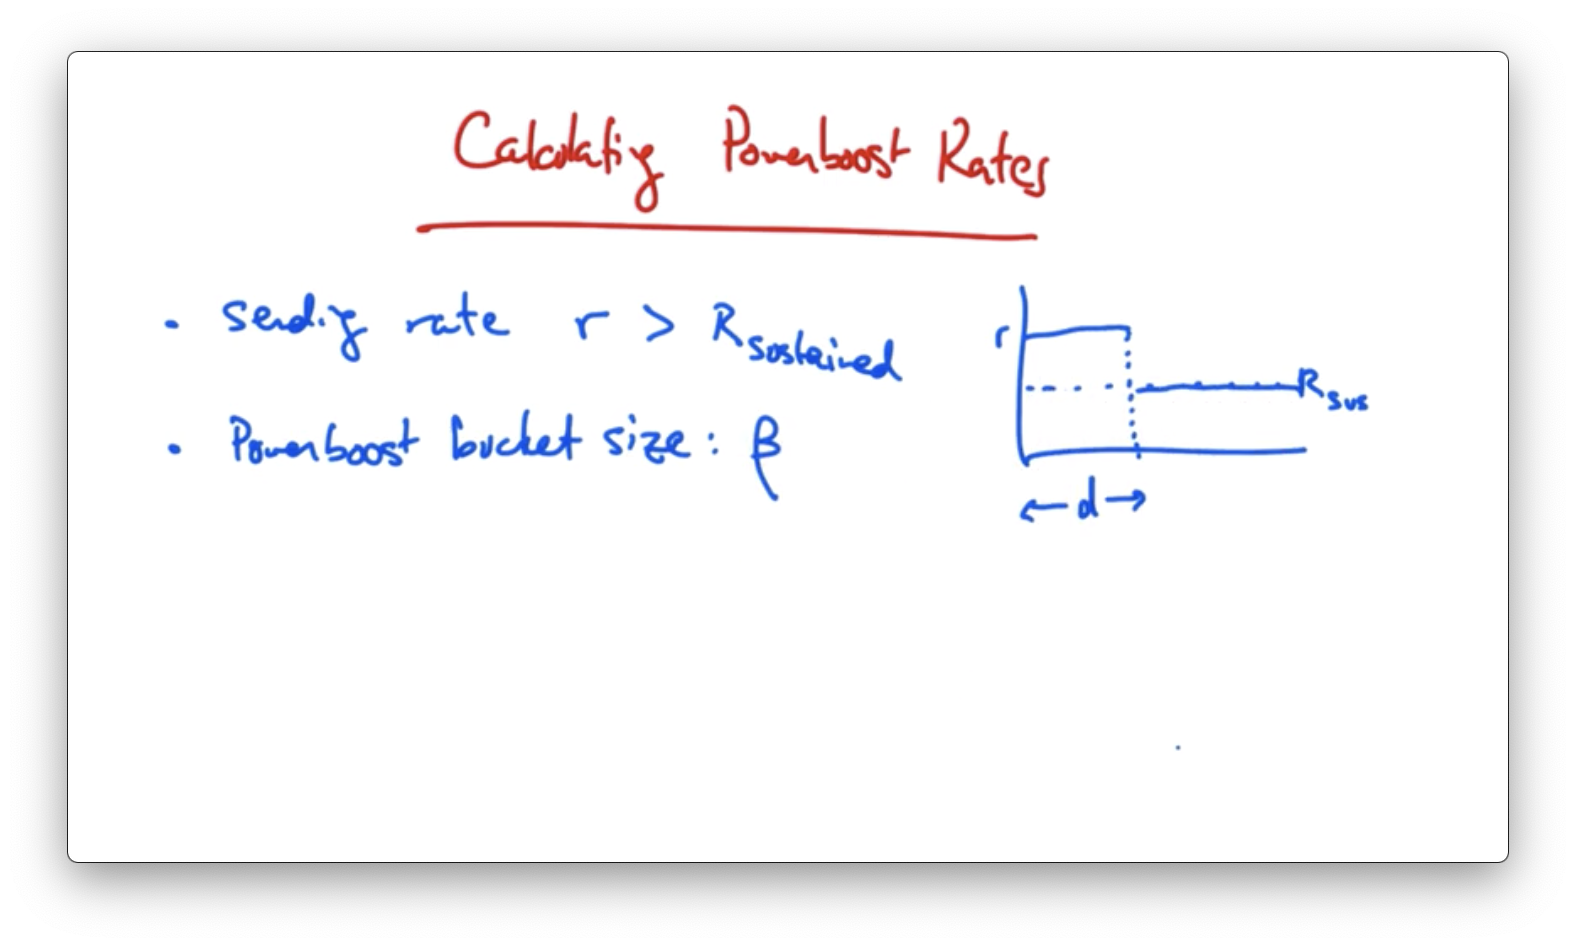 Calculating Powerboost Rates
• Sending rate r > R sustained
• Powerboost bucket size: β
r
R sus
d